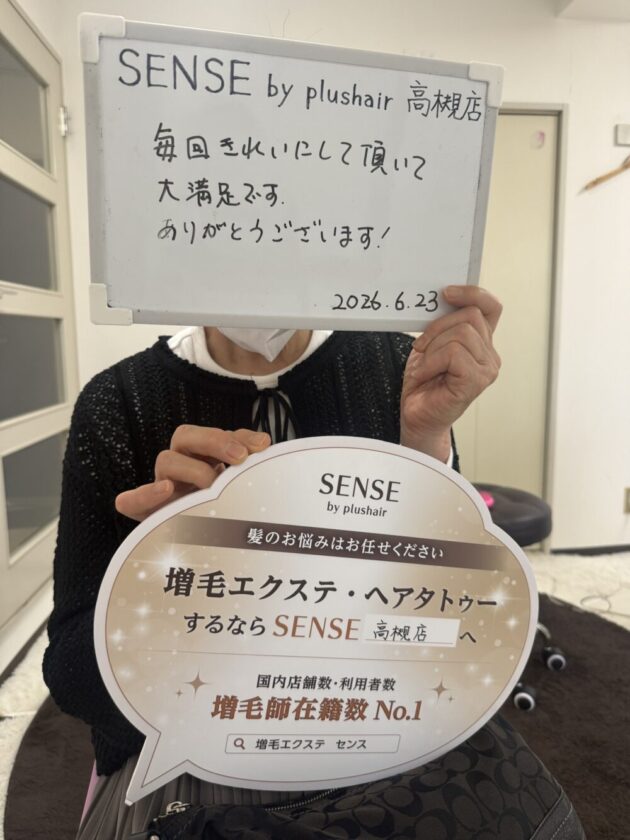 SENSE by plushair 高槻店
毎回きれいにして頂いて
大満足です.
ありがとうございます!
2026.6.23
SENSE
by plushair
髪のお悩みはお任せください
増毛エクステ・ヘアタトゥー
するなら SENSE 高槻店 へ
国内店舗数・利用者数
増毛師在籍数 No.1
増毛エクステ センス